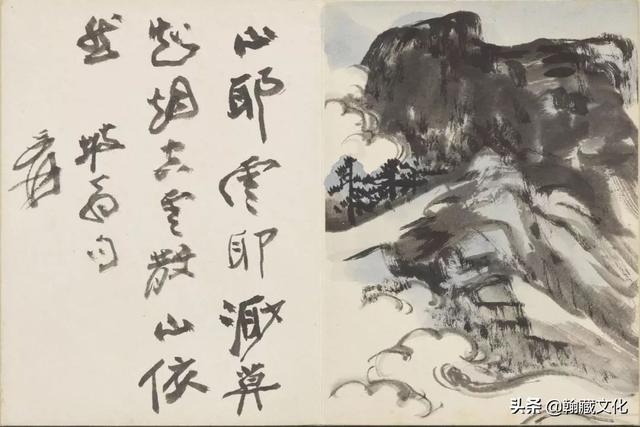 山耶雲耶莫
知烟空雲散山依
然 坡翁句
爰
头条 @翰藏文化